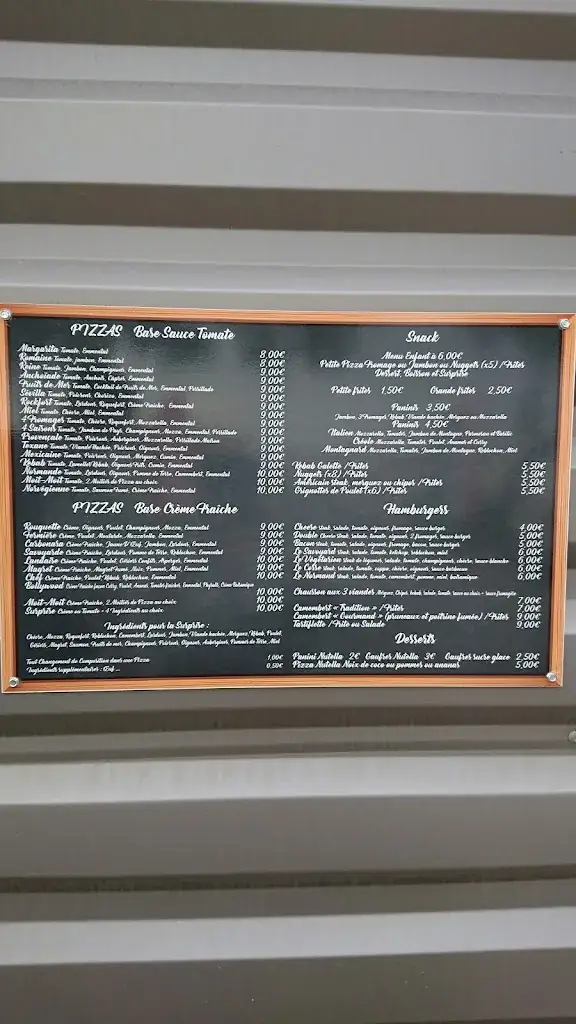 PIZZAS Base Sauce Tomate
Margarita Tomate, Emmental 8,00€
Romaine Tomate, Jambon, Emmental 8,00€
Reine Tomate, Jambon, Champignons, Emmental 9,00€
Anchoiade Tomate, Anchois, Câpres, Emmental 9,00€
Fruits de Mer Tomate, Cocktail de Fruits de Mer, Emmental, Persillade 9,00€
Sévilla Tomate, Poivrons, Chorizo, Emmental 9,00€
Rockfort Tomate, Lardons, Roquefort, Crème Fraiche, Emmental 9,00€
Miel Tomate, Chèvre, Miel, Emmental 9,00€
4 Fromages Tomate, Chèvre, Roquefort, Mozzarella, Emmental 9,00€
4 Saisons Tomate, Jambon de Pays, Champignons, Mozza, Emmental, Persillade 9,00€
Provençale Tomate, Poivrons, Aubergines, Mozzarella, Persillade Maison 9,00€
Texane Tomate, Viande Hachée, Poivrons, Oignons, Emmental 9,00€
Mexicaine Tomate, Poivrons, Oignons, Merguez, Emmental 9,00€
Kebab Tomate, Emmental, Kebab, Oignons 9,00€
Normande Tomate, Lardons, Oignons, Pomme de Terre, Camembert, Emmental 10,00€
Moit-Moit Tomate, 2 Moitiés de Pizza au choix 10,00€
Norvégienne Tomate, Saumon Fumé, Crème Fraiche, Emmental 10,00€
PIZZAS Base Crème Fraiche
Rouquette Crème, Oignons, Poulet, Champignons, Mozza, Emmental 9,00€
Fermière Crème, Poulet, Moutarde, Mozzarella, Emmental 9,00€
Carbonara Crème Fraiche, Jaune d'Œuf, Jambon, Lardons, Emmental 9,00€
Savoyarde Crème Fraiche, Lardons, Pomme de Terre, Reblochon, Emmental 9,00€
Landaise Crème Fraiche, Poulet, Gésiers Confits, Asperges, Emmental 10,00€
Magret Crème Fraiche, Magret Fumé, Noix, Pommes, Miel, Emmental 10,00€
Chef Crème Fraiche, Poulet, Kebab, Reblochon, Emmental 10,00€
Bollywood Crème Fraiche 10,00€
Moit-Moit Crème Fraiche, 2 Moitiés de Pizza au choix 10,00€
Surprise Crème ou Tomate + 4 Ingrédients au choix 10,00€
Ingrédients pour la Surprise :
Chèvre, Mozza, Roquefort, Reblochon, Camembert, Lardons, Jambon, Viande hachée, Merguez, Kebab, Poulet,
Gésiers, Magret, Saumon, Fruits de mer, Champignons, Poivrons, Oignons, Aubergines, Pommes de Terre, Miel
Tout Changement de Composition dans une Pizza 1,00€
Ingrédients supplémentaires : Œuf ... 0,50€
Snack
Menu Enfant à 6,00€
Petite Pizza Fromage ou Jambon ou Nuggets (x5) / Frites
Dessert, Boisson et Surprise
Petite frites 1,50€ Grande frites 2,50€
Paninis 3,50€
Jambon, 3 Fromages, Kebab, Viande hachée, Merguez ou Mozzarella
Paninis 4,50€
Italien Mozzarella, Tomates, Jambon de Montagne, Parmesan et Basilic
Créole Mozzarella, Tomates, Poulet, Ananas et Curry
Montagnard Mozzarella, Tomates, Jambon de Montagne, Reblochon, Miel
Kebab Galette / Frites 5,50€
Nuggets (x8) / Frites 5,50€
Américain steak, merguez ou chipos / Frites 5,50€
Grignottes de Poulet (x6) / Frites 5,50€
Hamburgers
Cheese steak, salade, tomate, oignons, fromage, sauce burger 4,00€
Double Cheese steak, salade, tomate, oignons, 2 fromages, sauce burger 5,00€
Bacon steak, salade, tomate, oignons, fromage, bacon, sauce burger 5,00€
Le Savoyard steak, salade, tomate, ketchup, reblochon, miel 6,00€
Le Végétarien steak de légumes, salade, tomate, champignons, oignons, chèvre, sauce blanche 6,00€
Le Corse steak, salade, tomate, coppa, chèvre, oignons, sauce barbecue 6,00€
Le Normand steak, salade, tomate, camembert, pomme, miel, balsamique 6,00€
Chausson aux 3 viandes Merguez, Chipo, kebab, salade, tomate, sauce au choix - sauce fromagère 7,00€
Camembert « Tradition » / Frites 7,00€
Camembert « Gourmand » (grumeaux et poitrine fumée) / Frites 9,00€
Tartiflette / Frite ou Salade 9,00€
Desserts
Panini Nutella 2€ Gaufres Nutella 3€ Gaufres sucre glace 2,50€
Pizza Nutella Noix de coco ou pommes ou ananas 5,00€